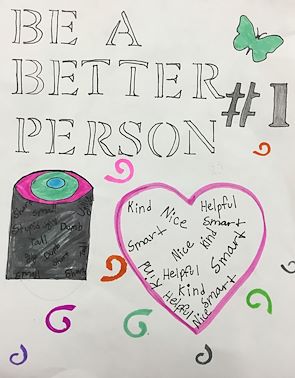 BE A
BETTER
#1
PERSON
Kind Nice Helpful
Smart
Smart Nice Kind
Smart
Kind Helpful
Kind
Helpful Smart
Nice
Stupid Dumb
Tall
Small